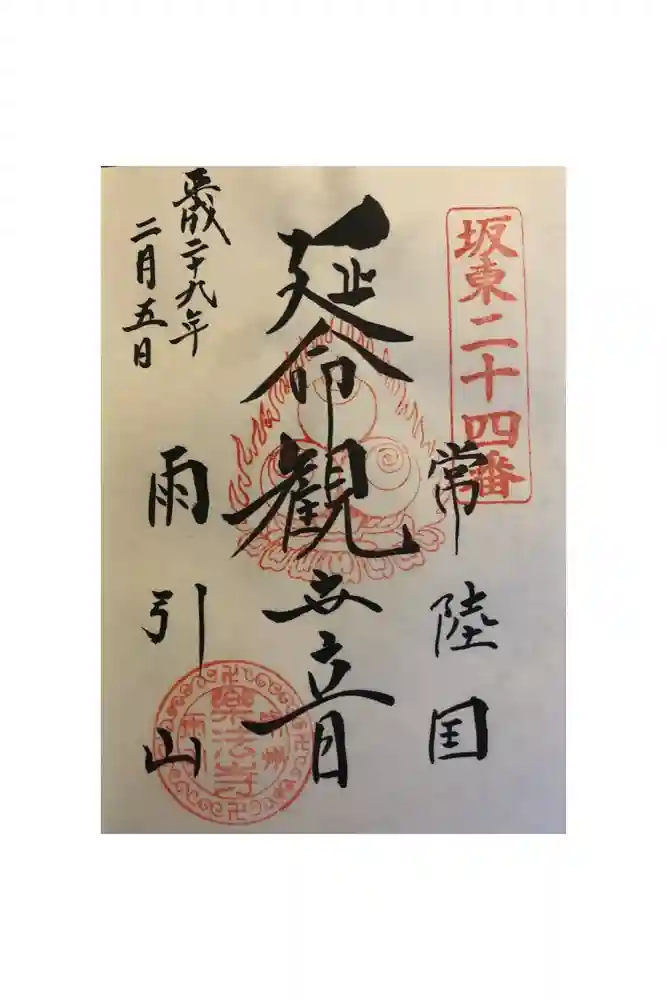 坂東二十四番
常陸国
延命観世音
雨引山
平成二十九年
二月五日
楽法寺